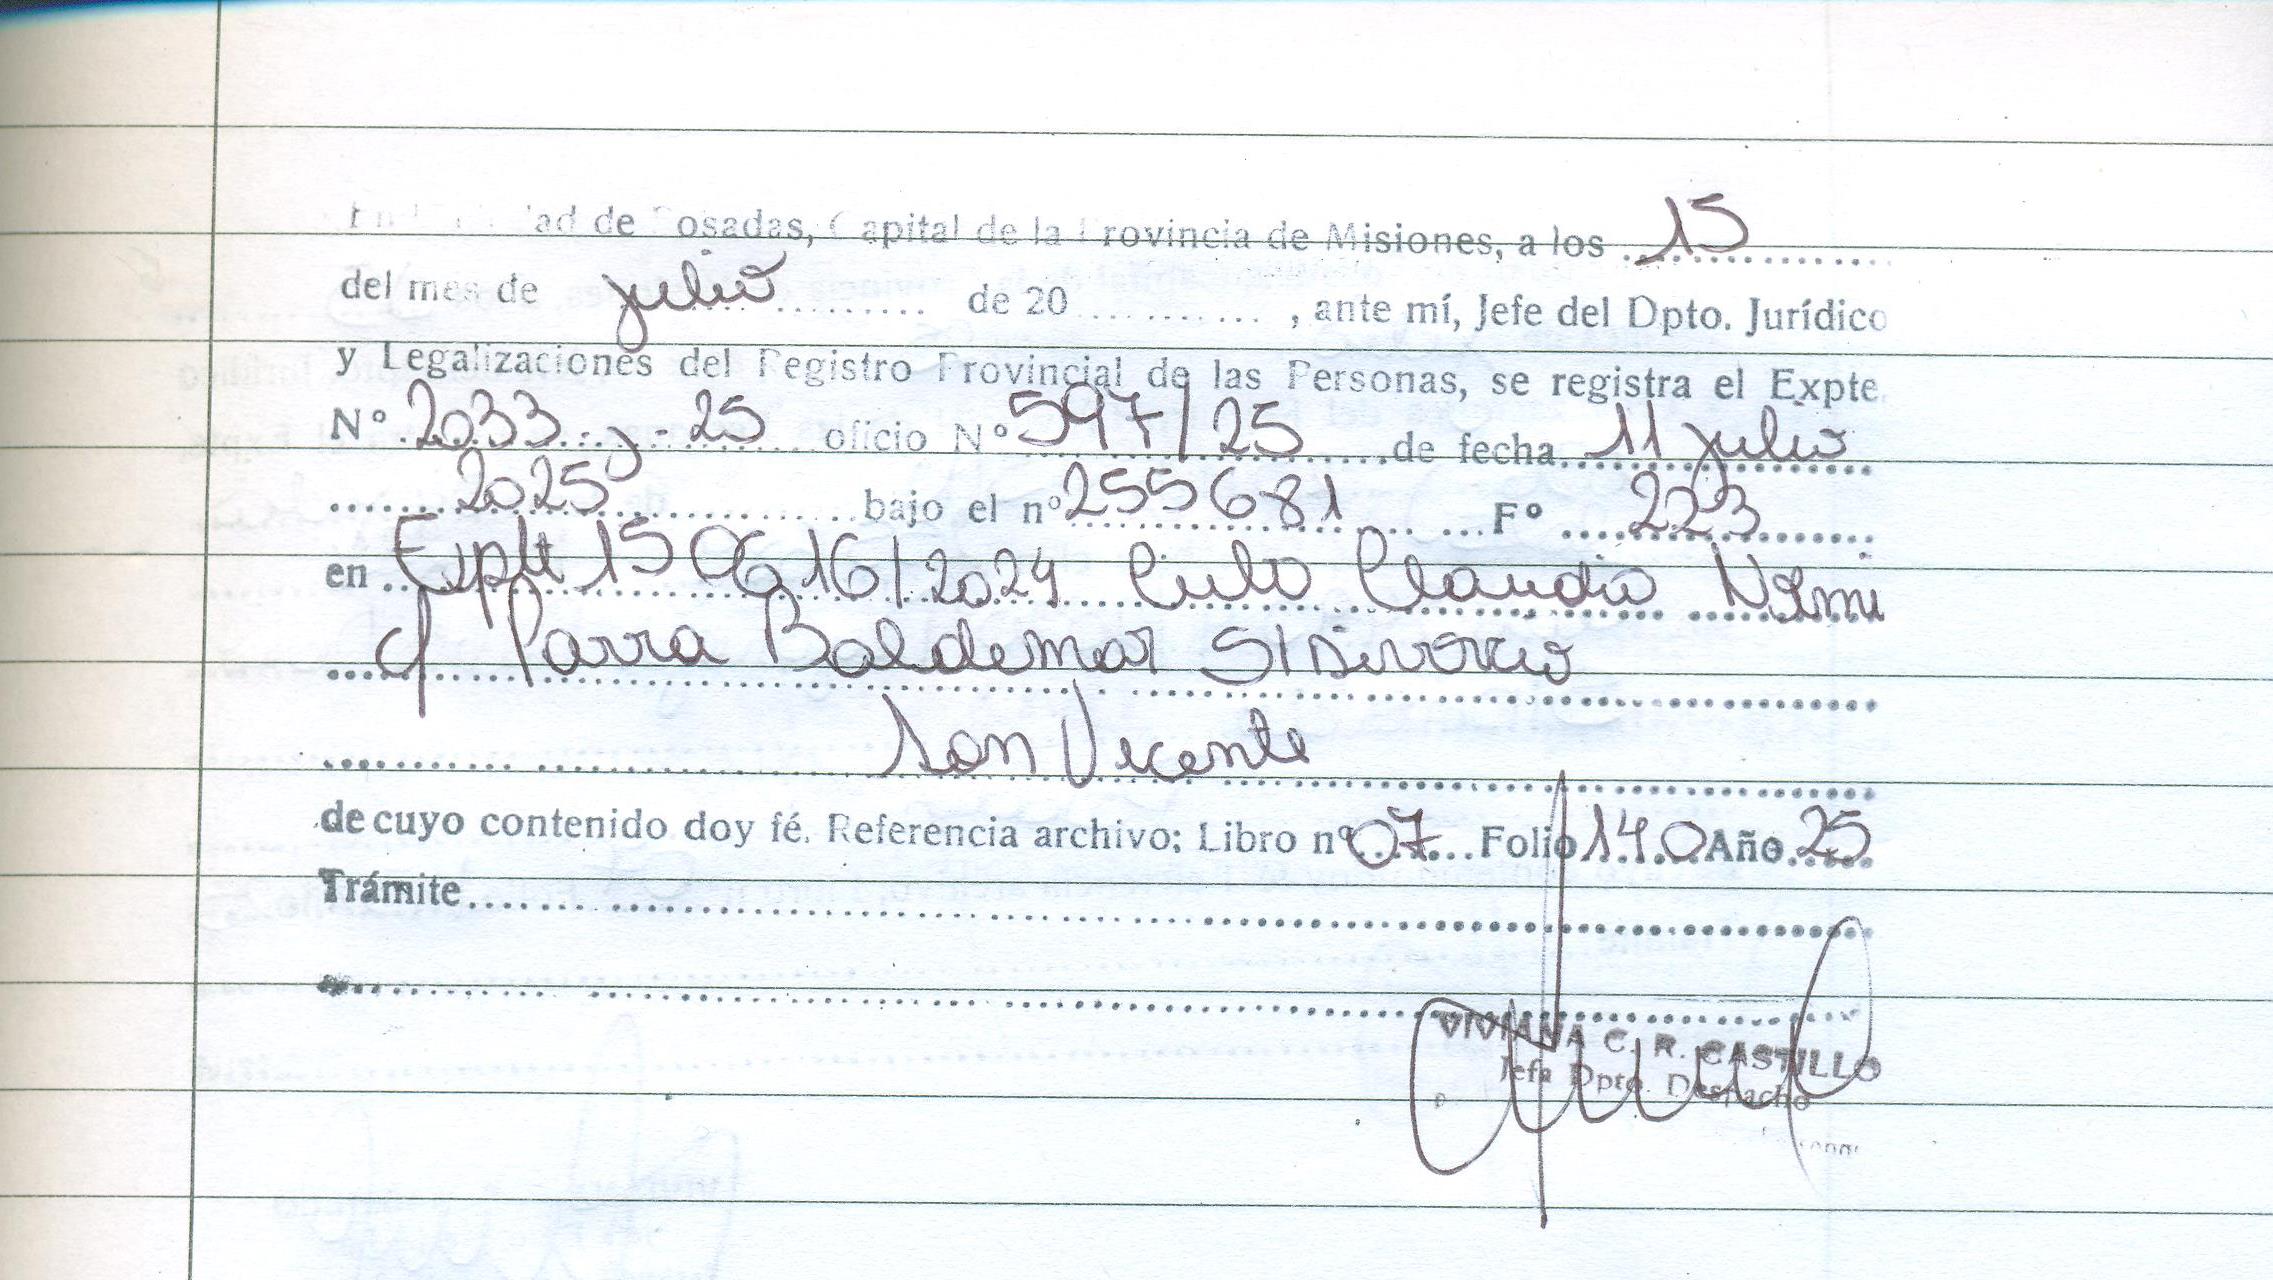 En la Ciudad de Posadas, Capital de la Provincia de Misiones, a los 15
del mes de julio de 20 ........... , ante mí, Jefe del Dpto. Jurídico
y Legalizaciones del Registro Provincial de las Personas, se registra el Expte.
Nº 2033-y-25 oficio Nº 597/25 de fecha 11 julio
2025 bajo el nº 255681 Fº 223
en Expte 150616/2024 Claudia
c/ Parra Baldemar S/Divorcio
San Vicente
de cuyo contenido doy fé. Referencia archivo; Libro nº 07 Folio 140 Año 25
Trámite
VIVIANA C. R. CASTILLO
Jefa Dpto. Despacho